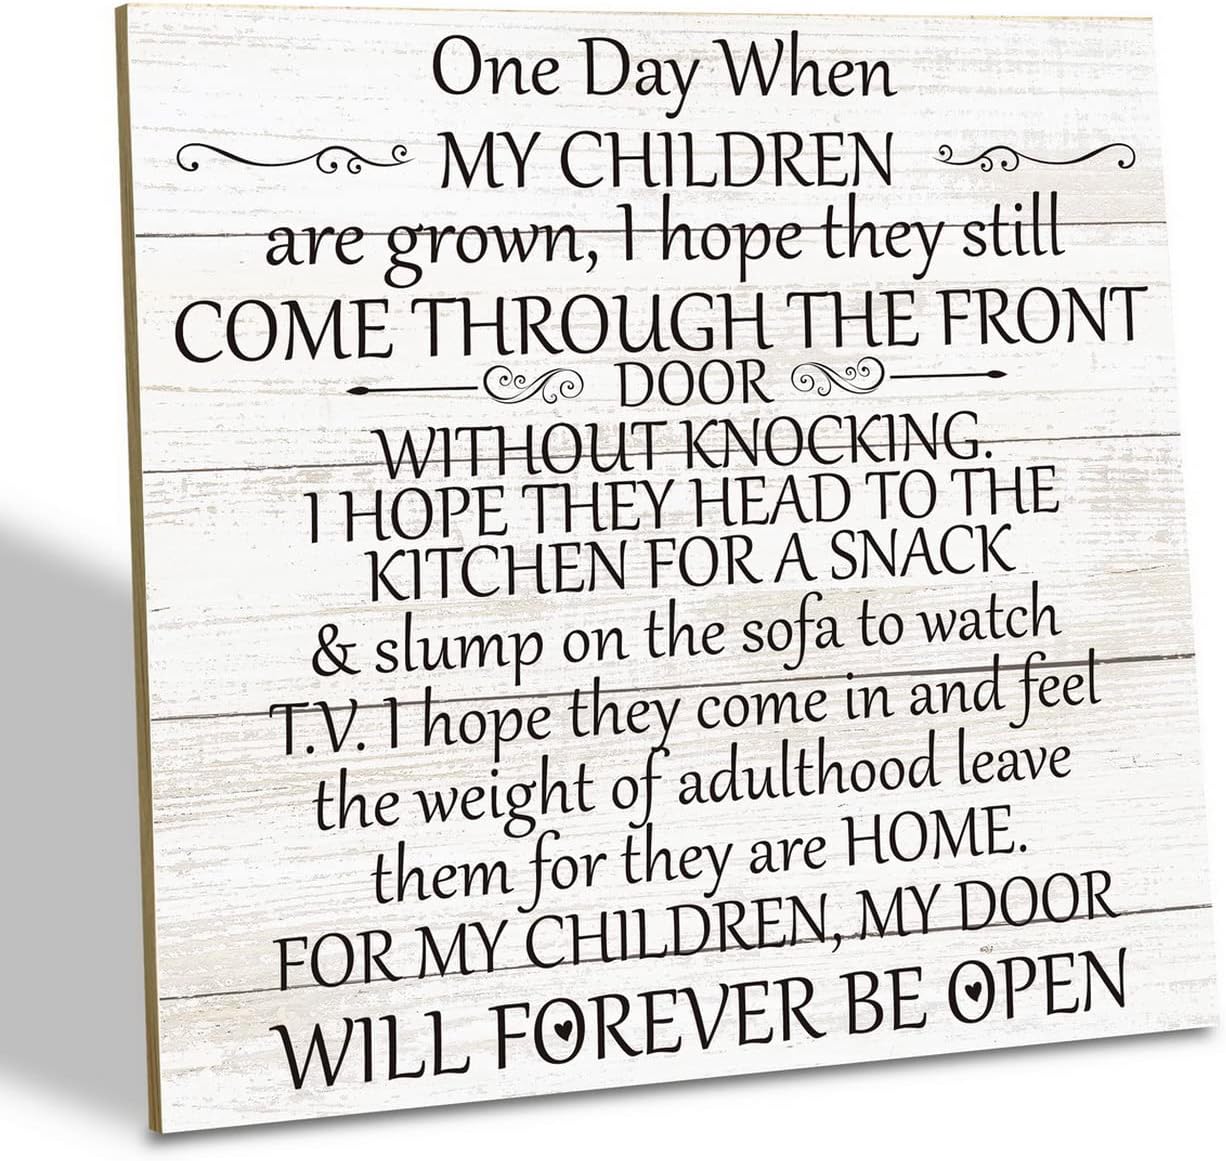 One Day When
MY CHILDREN
are grown, I hope they still
COME THROUGH THE FRONT
DOOR
WITHOUT KNOCKING.
I HOPE THEY HEAD TO THE
KITCHEN FOR A SNACK
& slump on the sofa to watch
T.V. I hope they come in and feel
the weight of adulthood leave
them for they are HOME.
FOR MY CHILDREN, MY DOOR
WILL FOREVER BE OPEN